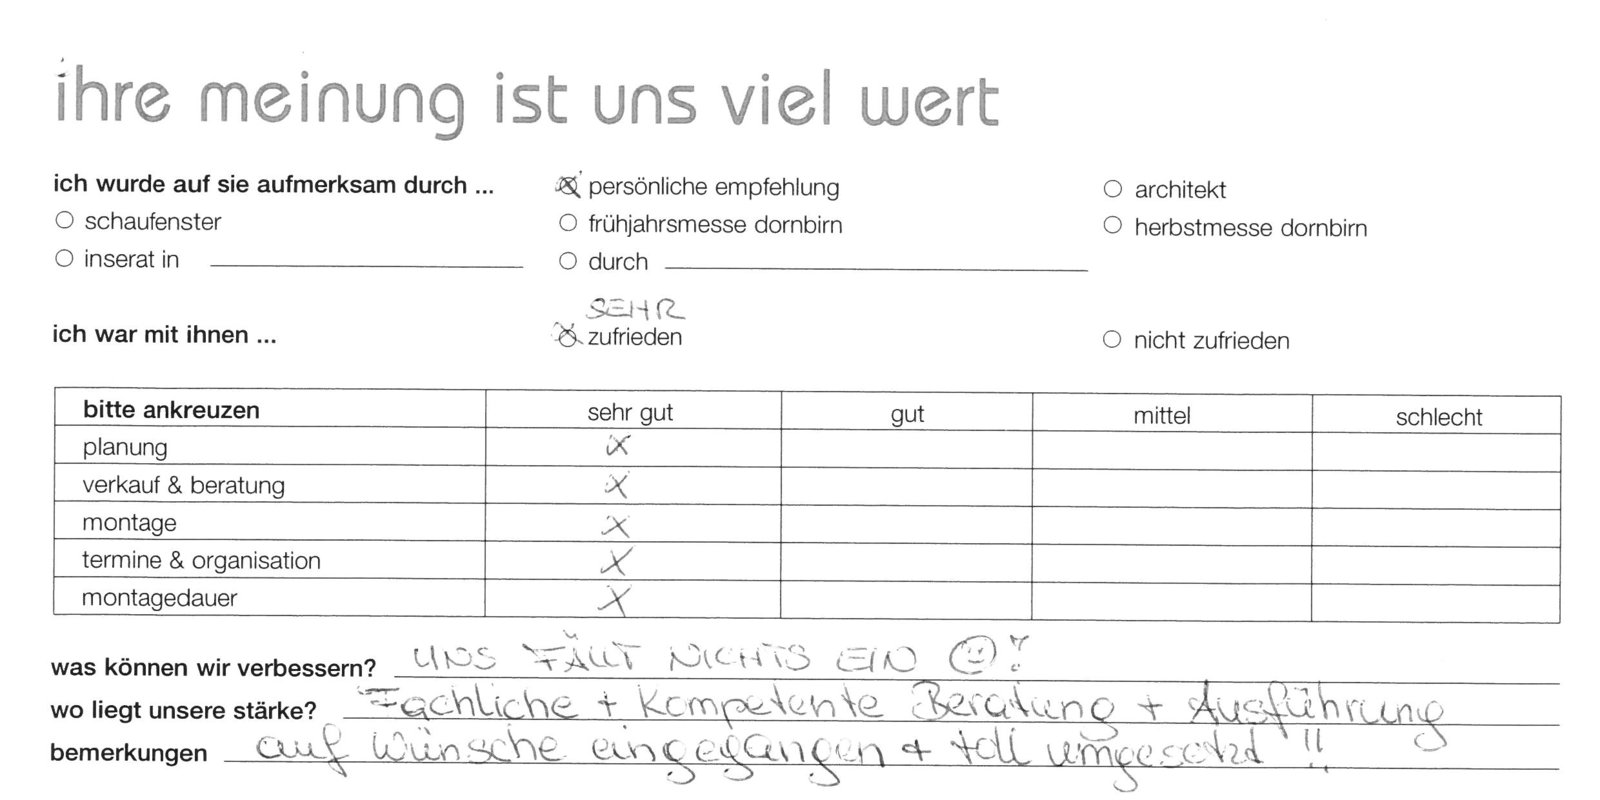 ihre meinung ist uns viel wert
ich wurde auf sie aufmerksam durch ... persönliche empfehlung architekt
schaufenster frühjahrsmesse dornbirn herbstmesse dornbirn
inserat in durch
SEHR
ich war mit ihnen ... zufrieden nicht zufrieden
bitte ankreuzen sehr gut gut mittel schlecht
planung x
verkauf & beratung x
montage x
termine & organisation x
montagedauer x
was können wir verbessern? UNS FÄLLT NICHTS EIN ☺!
wo liegt unsere stärke? Fachliche + Kompetente Beratung + Ausführung
bemerkungen auf Wünsche eingegangen + toll umgesetzt !!